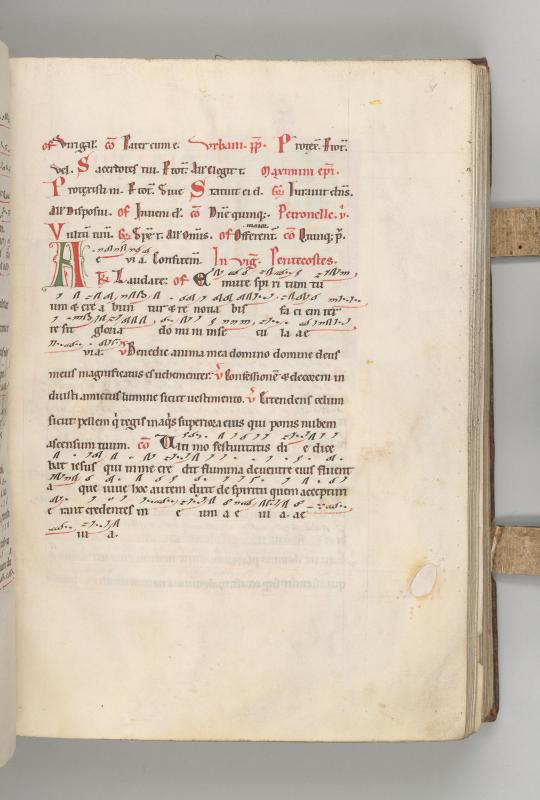 of Virga ł. cō Pater cum e. Vrbani. pp̄. Protex. Pror.
vel. Sacerdotes tui. Pror. All̄ Elegit t. Maximini epi.
Protexisti m. Pror. Siue Statuit ei d. Iurauit dn̄s.
All̄ Disposui. of Inueni d'. cō Dn̄e quinq;. Petronelle. v̄.
Vultū tuū. Spē t. All̄ Om̄is. of Offerent'. maior. cō Quinq; p̄.
A e via. Confitem̄. In vig̃. Pentecostes.
Laudate: of Emitte spi ri tum tu
um & cre a bun tur & re noua bis fa ci em ter
re sit gloria do mi ni in se cu la ae
via. v̄ Benedic anima mea domino domine deus
meus magnificatus es uehementer. v̄ Confessionē & decorem in
duisti amictus lumine sicut uestimento. v̄ Extendens celum
sicut pellem q̄ tegis in aq̄s superiora eius qui ponis nubem
ascensum tuum. cō Vlti mo festiuitatis di e dice
bat iesus qui in me cre dit flumina de uentre eius fluent
a que uiue hoc autem dixit de spiritu quem accepturi
e rant credentes in e um a e uia. ae
uia.